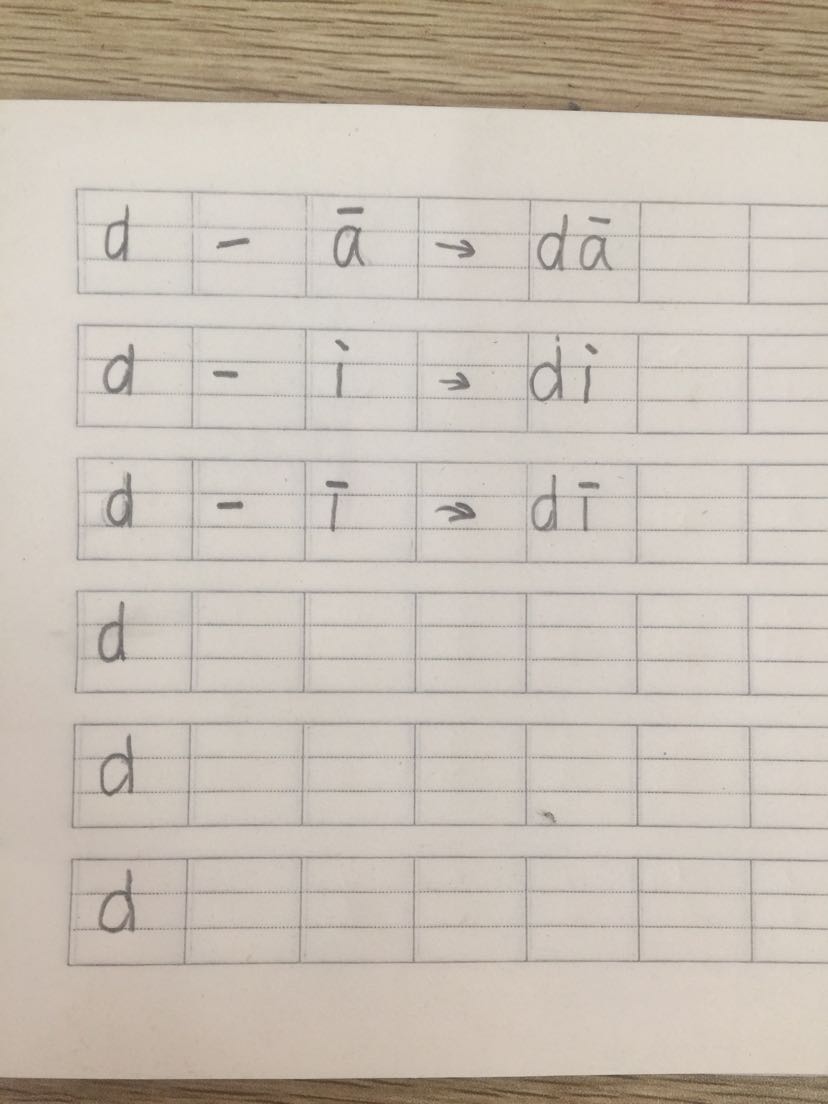 d - ā → dā
d - i → di
d - ī → dī
d
d
d